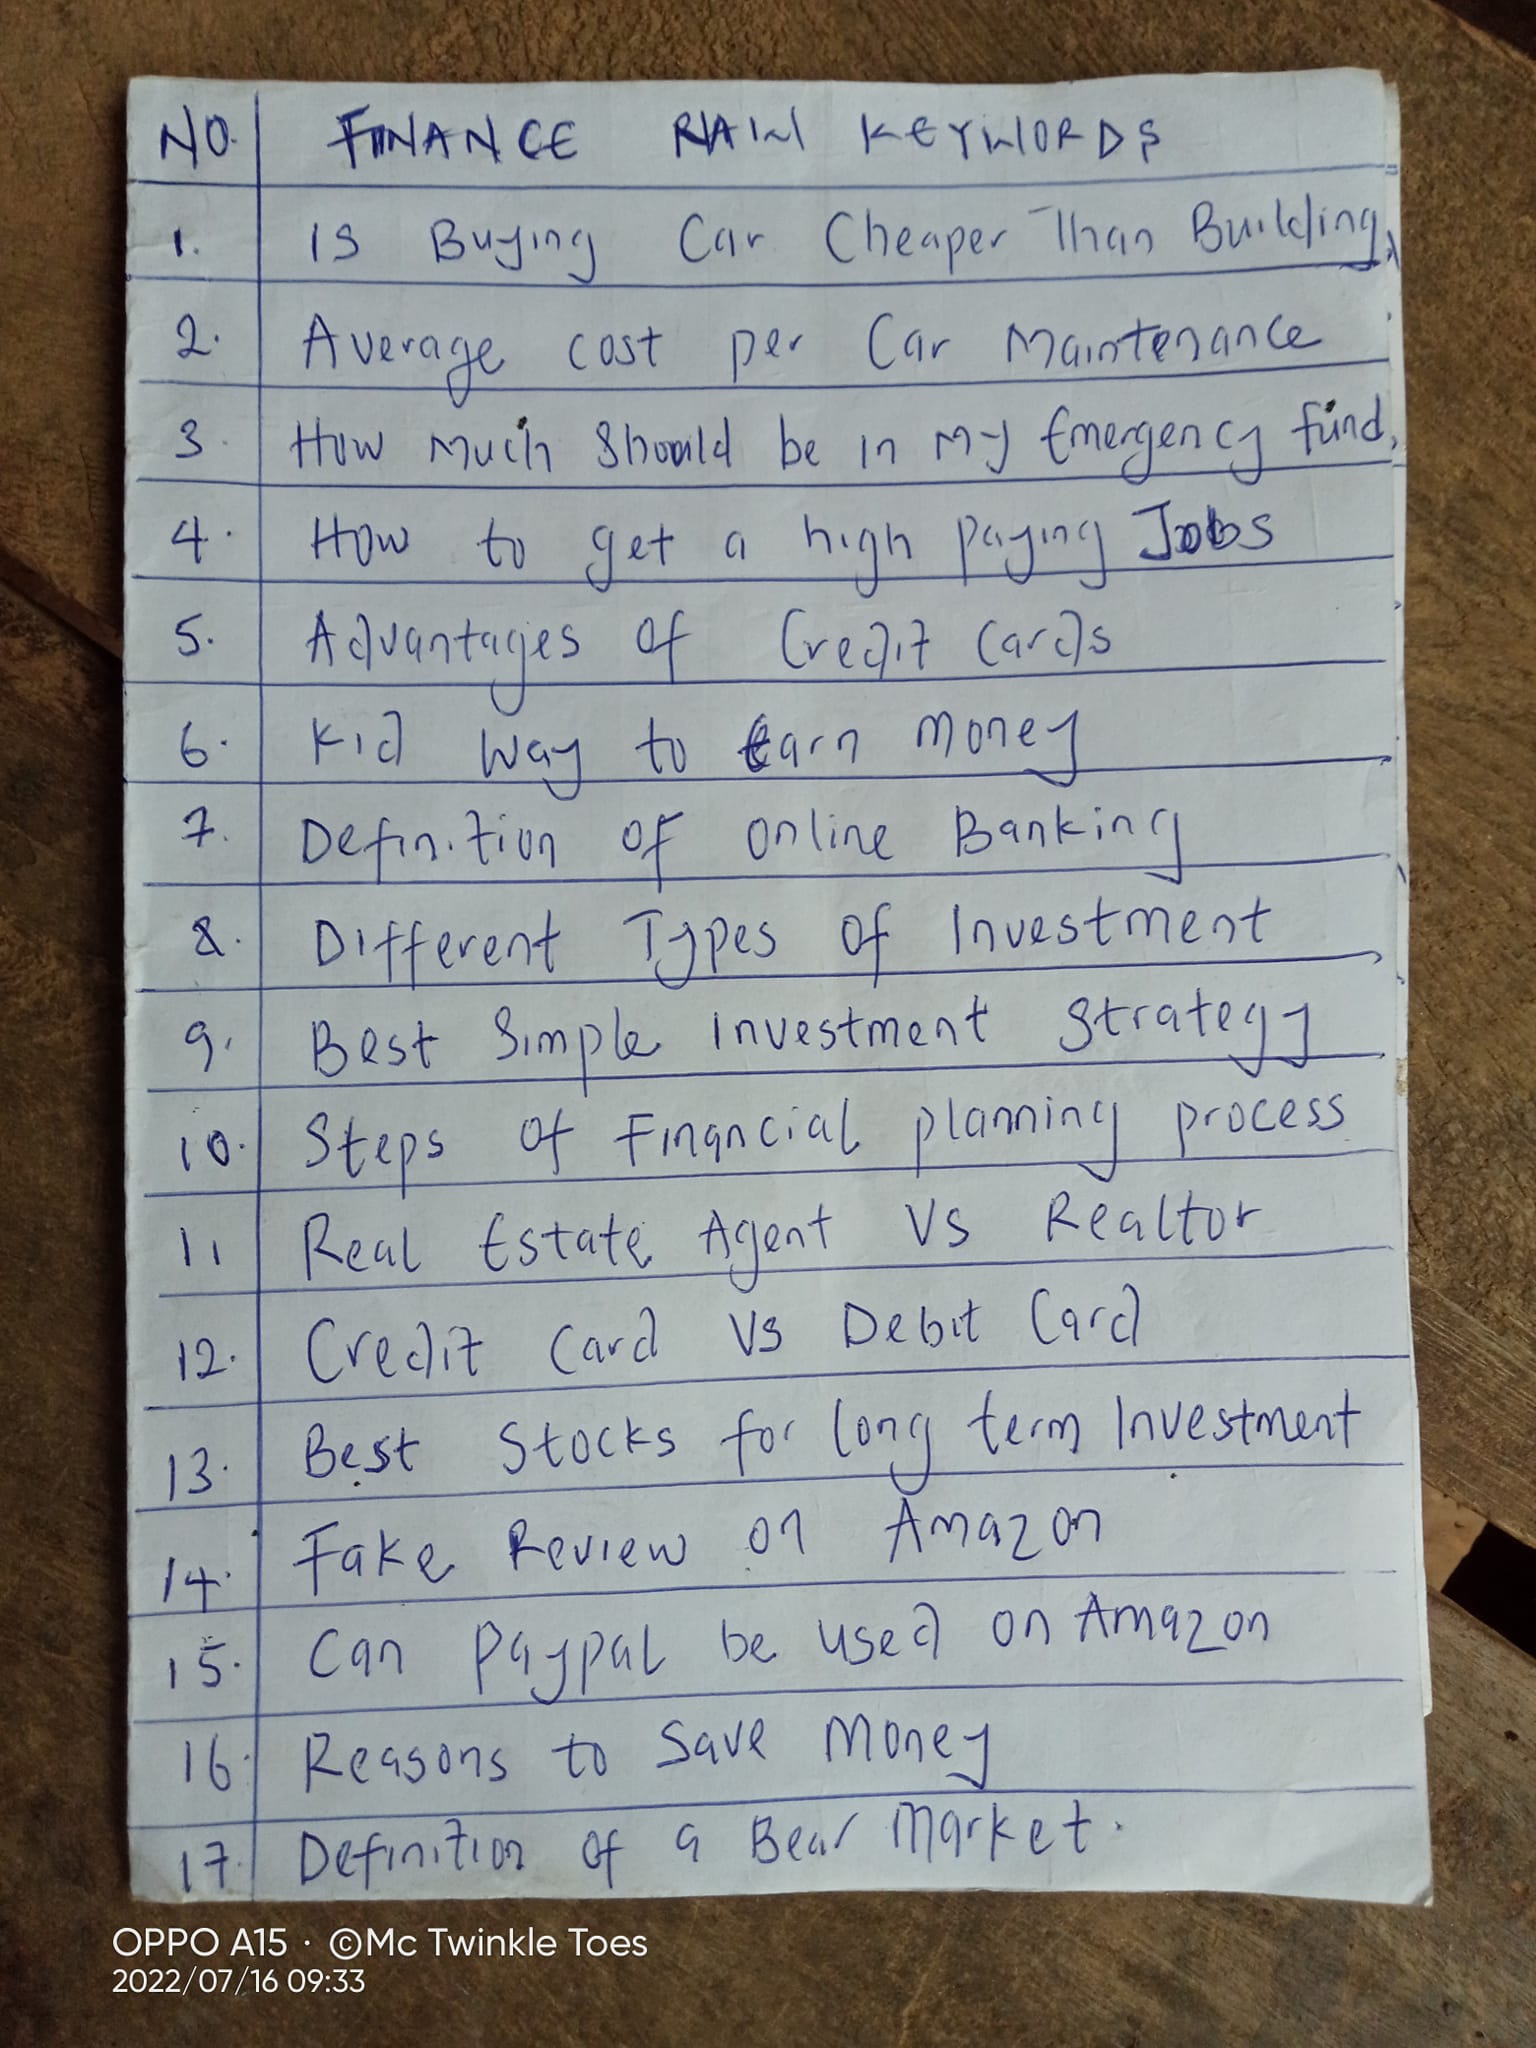 NO. FINANCE RAW KEYWORDS
1. Is Buying Car Cheaper Than Building,
2. Average cost per Car Maintenance
3. How Much Should be in My Emergency fund,
4. How to get a high paying Jobs
5. Advantages of Credit Cards
6. Kid way to Earn Money
7. Definition of Online Banking
8. Different Types of Investment
9. Best Simple Investment Strategy
10. Steps of Financial planning process
11 Real Estate Agent Vs Realtor
12. Credit Card Vs Debit Card
13. Best Stocks for long term Investment
14. Fake Review on Amazon
15. Can Paypal be used on Amazon
16. Reasons to Save Money
17. Definition of a Bear Market.
OPPO A15 · ©Mc Twinkle Toes
2022/07/16 09:33